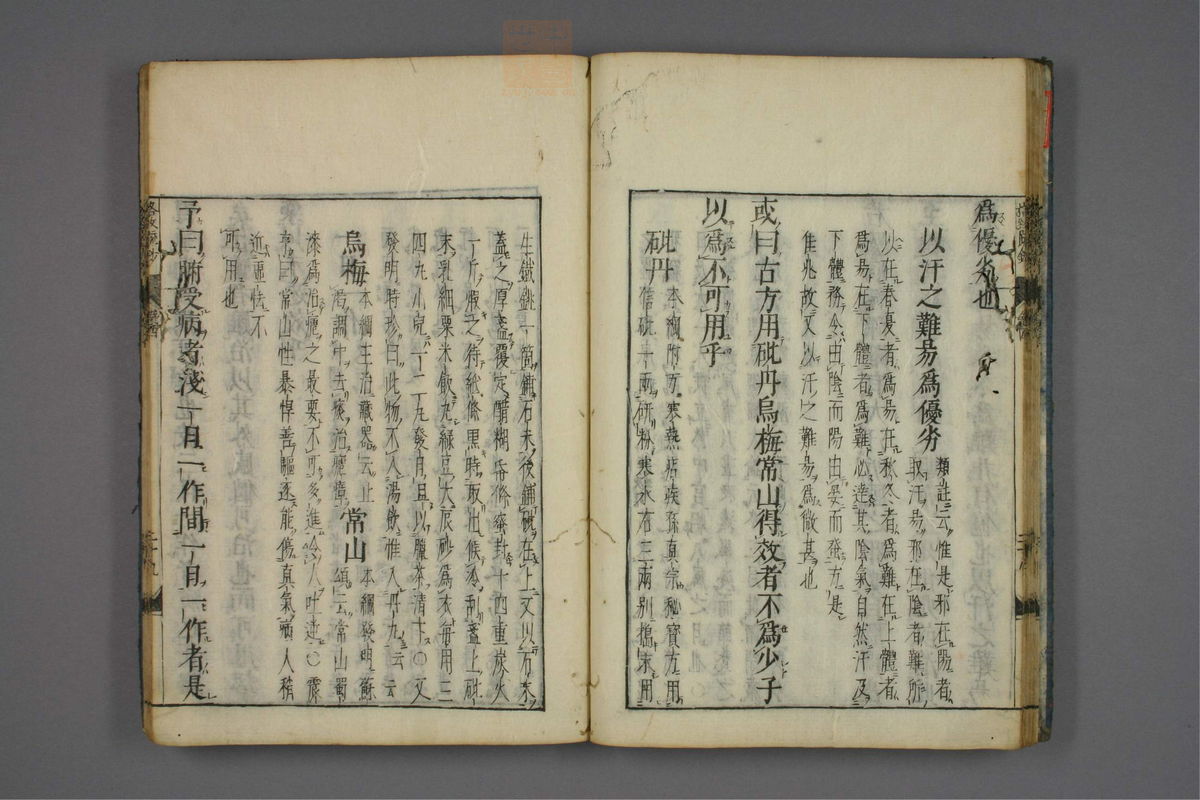 為優劣也
以汗之難易為優劣 類註云惟是邪在陽者
取汗易邪在陰者難所
以在春夏者為易在秋冬者為難在上體者
為易在下體者為難必達其陰氣自然汗及
下體務令由陰而陽由晏而發方是
佳兆故又以汗之難易為微甚也
或曰古方用砒丹烏梅常山得效者不為少子
以為不可用乎
砒丹 本綱附方寒熱痁疾孫真宗秘寶方用
信砒二兩研粉寒水石三兩別搗末用
生鐵銚一箇鋪石末後鋪砒在上又以石末
蓋之厚盞覆定醋糊紙條密封十四重炭火
一斤煅之待紙條黑時取出候冷刮盞上砒
末乳細粟米飲丸綠豆大辰砂為衣每用三
四丸小兒一二丸發日早以臘茶清下〇又
發明時珍曰此物不入湯飲惟入丹丸云云
烏梅 本綱主治藏器云止
渴調中去痰治瘧瘴 常山 本綱發明蘇
頌云常山蜀
漆為治瘧之最要不可多進令人吐逆〇震
亨曰常山性暴悍善驅逐能傷真氣病人稍
近虛怯不
可用也
予曰腑受病者淺一日一作間一日一作者是